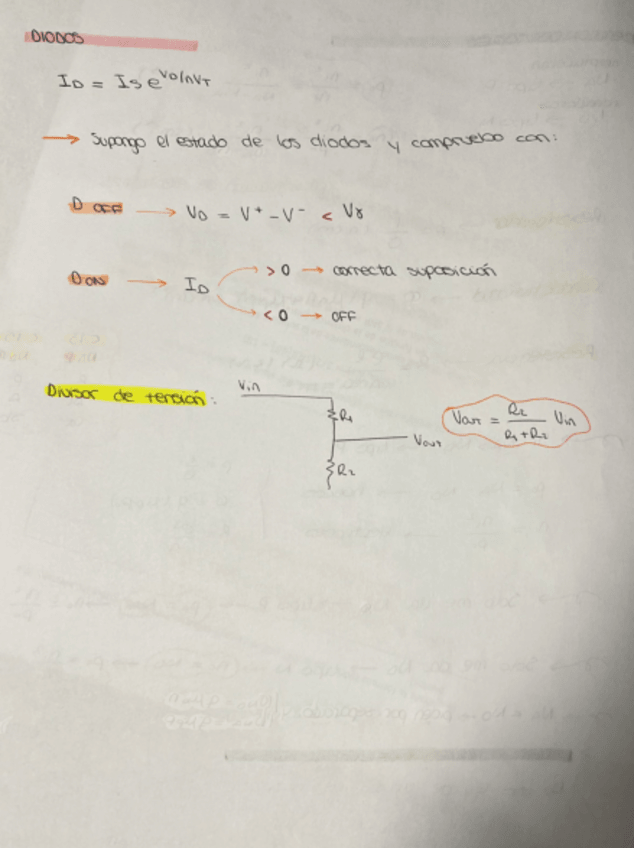 DIODOS
ID = IS e^VD/nVT
→ Supongo el estado de los diodos y compruebo con:
D OFF → VD = V⁺ - V⁻ < Vγ
D ON → ID > 0 → correcta suposición
< 0 → OFF
Divisor de tensión:
Vin
R1
Vout
R2
Vout = R2 / R1+R2 Vin